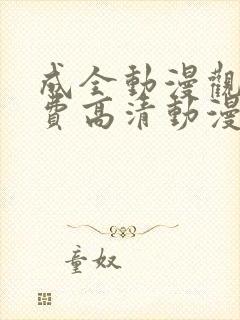 成全動漫觀
費高清動漫
童奴